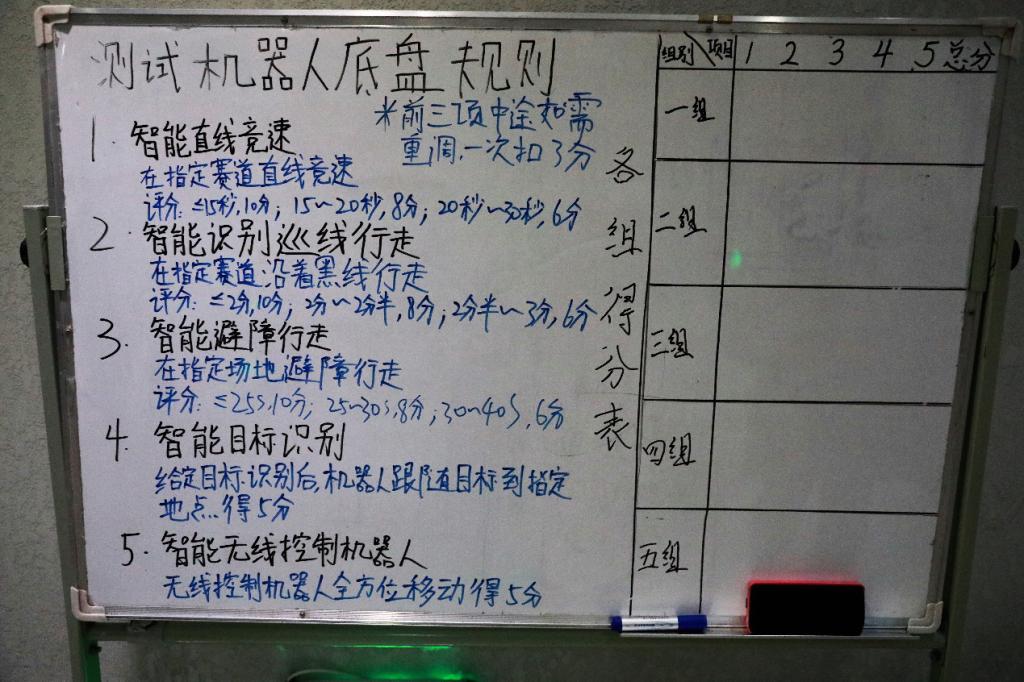 测试机器人底盘规则
*前三项中途如需
重调,一次扣3分
1. 智能直线竞速
在指定赛道直线竞速
评分: ≤15秒,10分; 15~20秒,8分; 20秒~30秒,6分
2. 智能识别巡线行走
在指定赛道沿着黑线行走
评分: ≤2分,10分; 2分~2分半,8分; 2分半~3分,6分
3. 智能避障行走
在指定场地避障行走
评分: ≤25s,10分; 25~30s,8分; 30~40s,6分
4. 智能目标识别
给定目标识别后,机器人跟随目标到指定
地点.得5分
5. 智能无线控制机器人
无线控制机器人全方位移动得5分
各组得分表
组别\项目 1 2 3 4 5 总分
一组
二组
三组
四组
五组